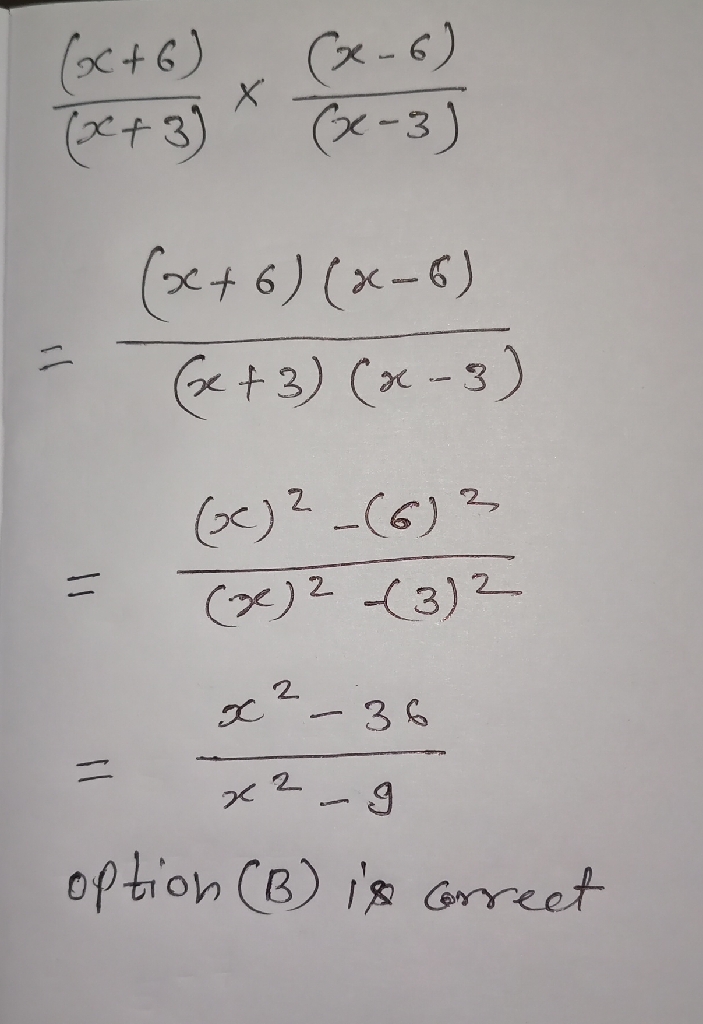 (x+6) (x-6)
___ × ___
(x+3) (x-3)
(x+6) (x-6)
= ___
(x+3) (x-3)
(x)² -(6)²
= ___
(x)² -(3)²
x² - 36
= ___
x² - 9
option (B) is correct